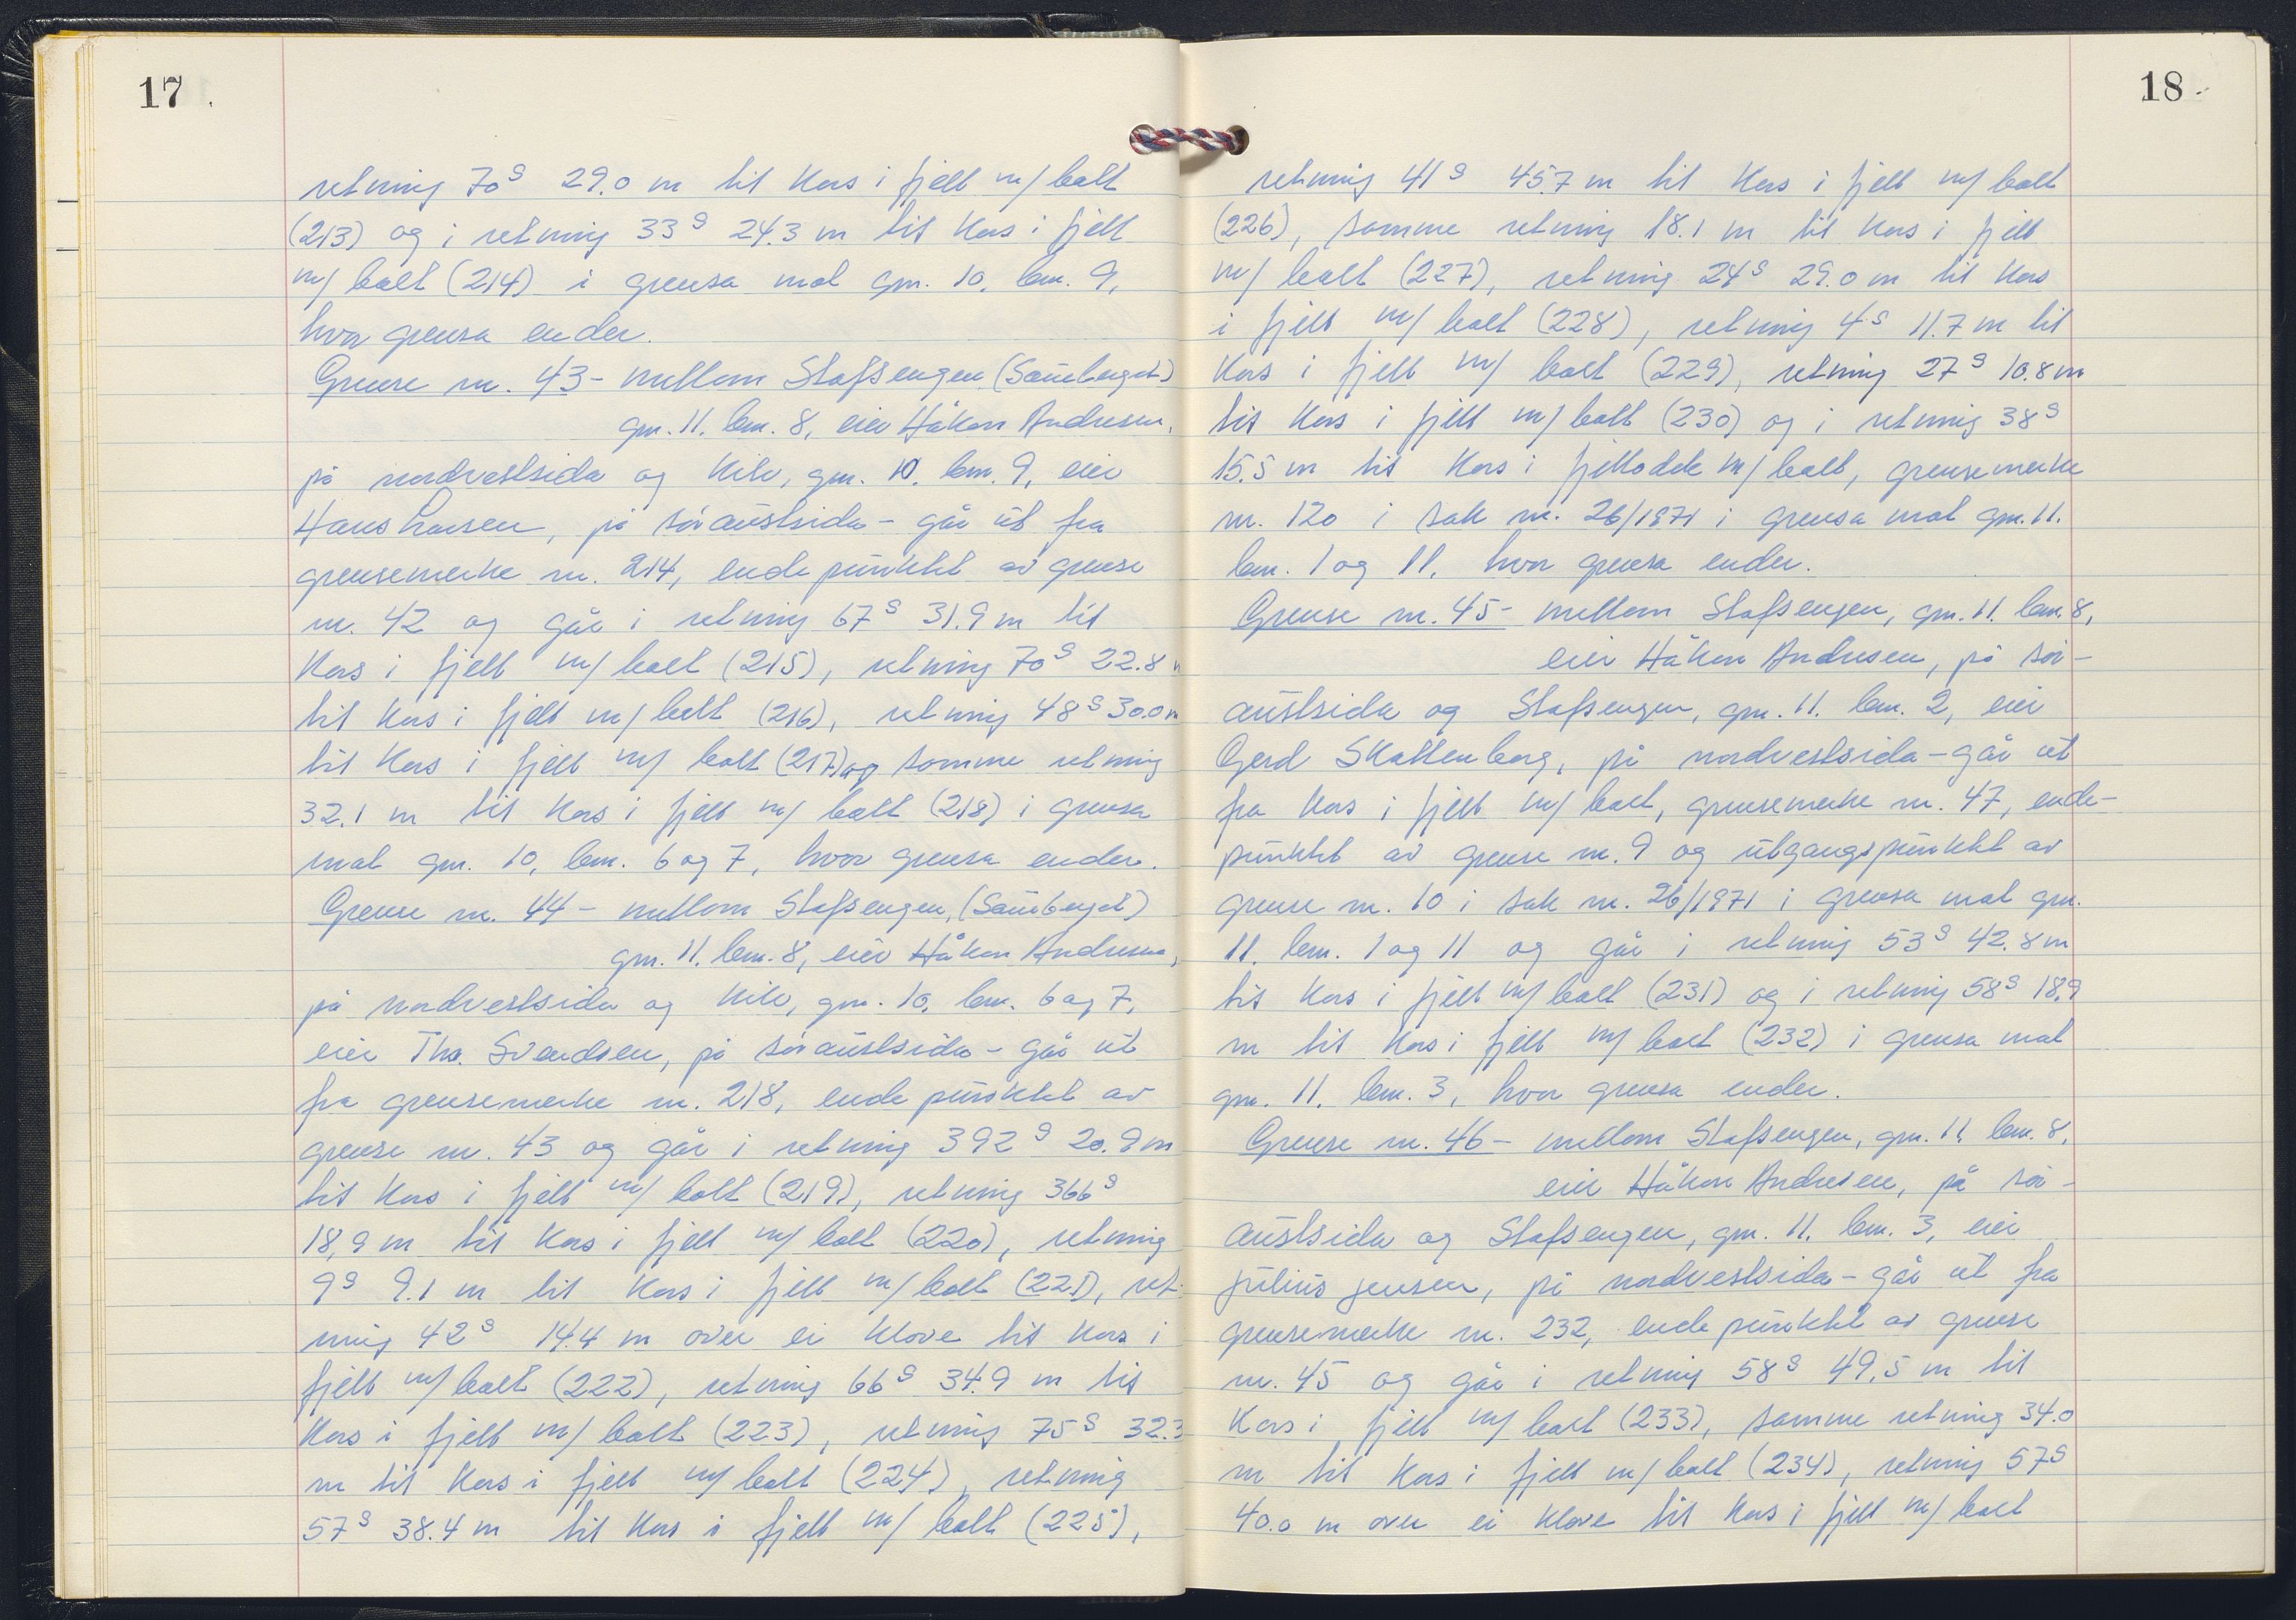 17
retning 70g 29.0 m til kors i fjell m/ bolt
(213) og i retning 33g 24.3 m til kors i fjell
m/ bolt (214) i grensa mot gnr. 10. bnr. 9,
hvor grensa ender.
Grense nr. 43 - mellom Stafsengen (Sauberget)
gnr. 11. bnr. 8, eier Håkon Andresen,
på nordvestsida og Kile, gnr. 10. bnr. 9, eier
Hans Larsen, på søraustsida - går ut fra
grensemerke nr. 214, endepunktet av grense
nr. 42 og går i retning 67g 31.9 m til
kors i fjell m/ bolt (215), retning 70g 22.8 m
til kors i fjell m/ bolt (216), retning 48g 30.0 m
til kors i fjell m/ bolt (217) og samme retning
32.1 m til kors i fjell m/ bolt (218) i grensa
mot gnr. 10, bnr. 6 og 7, hvor grensa ender.
Grense nr. 44 - mellom Stafsengen, (Sauberget)
gnr. 11. bnr. 8, eier Håkon Andresen,
på nordvestsida og Kile, gnr. 10. bnr. 6 og 7,
eier Ths. Svendsen, på søraustsida - går ut
fra grensemerke nr. 218, endepunktet av
grense nr. 43 og går i retning 392g 20.9 m
til kors i fjell m/ bolt (219), retning 366g
18,9 m til kors i fjell m/ bolt (220), retning
9g 9.1 m til kors i fjell m/ bolt (221), ret-
ning 42g 14.4 m over ei kløve til kors i
fjell m/ bolt (222), retning 66g 34.9 m til
kors i fjell m/ bolt (223), retning 75g 32.3
m til kors i fjell m/ bolt (224), retning
57g 38.4 m til kors i fjell m/ bolt (225),
18
retning 41g 45.7 m til kors i fjell m/ bolt
(226), samme retning 18.1 m til kors i fjell
m/ bolt (227), retning 24g 29.0 m til kors
i fjell m/ bolt (228), retning 4g 11.7 m til
kors i fjell m/ bolt (229), retning 27g 10.8 m
til kors i fjell m/ bolt (230) og i retning 38g
15.5 m til kors i fjellodde m/ bolt, grensemerke
nr. 120 i sak nr. 26/1971 i grensa mot gnr. 11.
bnr. 1 og 11, hvor grensa ender.
Grense nr. 45 - mellom Stafsengen, gnr. 11. bnr. 8,
eier Håkon Andresen, på sør-
austsida og Stafsengen, gnr. 11. bnr. 2, eier
Gerd Skallenberg, på nordvestsida - går ut
fra kors i fjell m/ bolt, grensemerke nr. 47, ende-
punktet av grense nr. 9 og utgangspunktet av
grense nr. 10 i sak nr. 26/1971 i grensa mot gnr.
11. bnr. 1 og 11 og går i retning 53g 42.8 m
til kors i fjell m/ bolt (231) og i retning 58g 18.9
m til kors i fjell m/ bolt (232) i grensa mot
gnr. 11. bnr. 3, hvor grensa ender.
Grense nr. 46 - mellom Stafsengen, gnr. 11 bnr. 8,
eier Håkon Andresen, på sør-
austsida og Stafsengen, gnr. 11. bnr. 3, eier
Julius Jensen, på nordvestsida - går ut fra
grensemerke nr. 232, endepunktet av grense
nr. 45 og går i retning 58g 49,5 m til
kors i fjell m/ bolt (233), samme retning 34.0
m til kors i fjell m/ bolt (234), retning 57g
40.0 m over ei kløve til kors i fjell m/ bolt